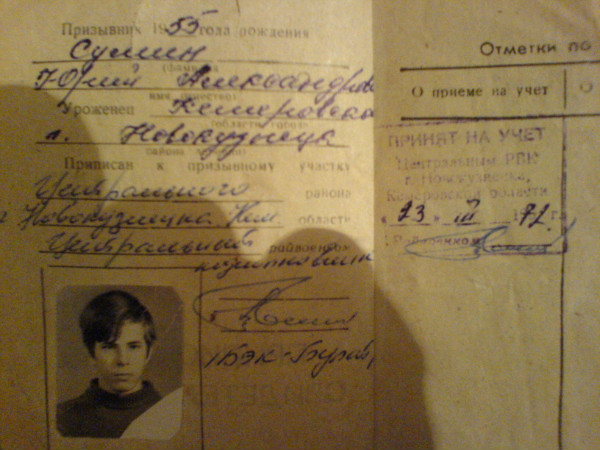 Призывник 1955 года рождения
Сумин
(фамилия
Юрий Александров
имя отчество)
Уроженец Кемеровска
(области город
г. Новокузнецк
района
Приписан к призывному участку
Центрального района
Новокузнецка Кем. области
Центральный райвоенко
Отметки по
О приеме на учет
О
ПРИНЯТ НА УЧЕТ
Центральным РВК
г. Новокузнецка,
Кемеровской области
„23" III 1972 г.
Райвоенком